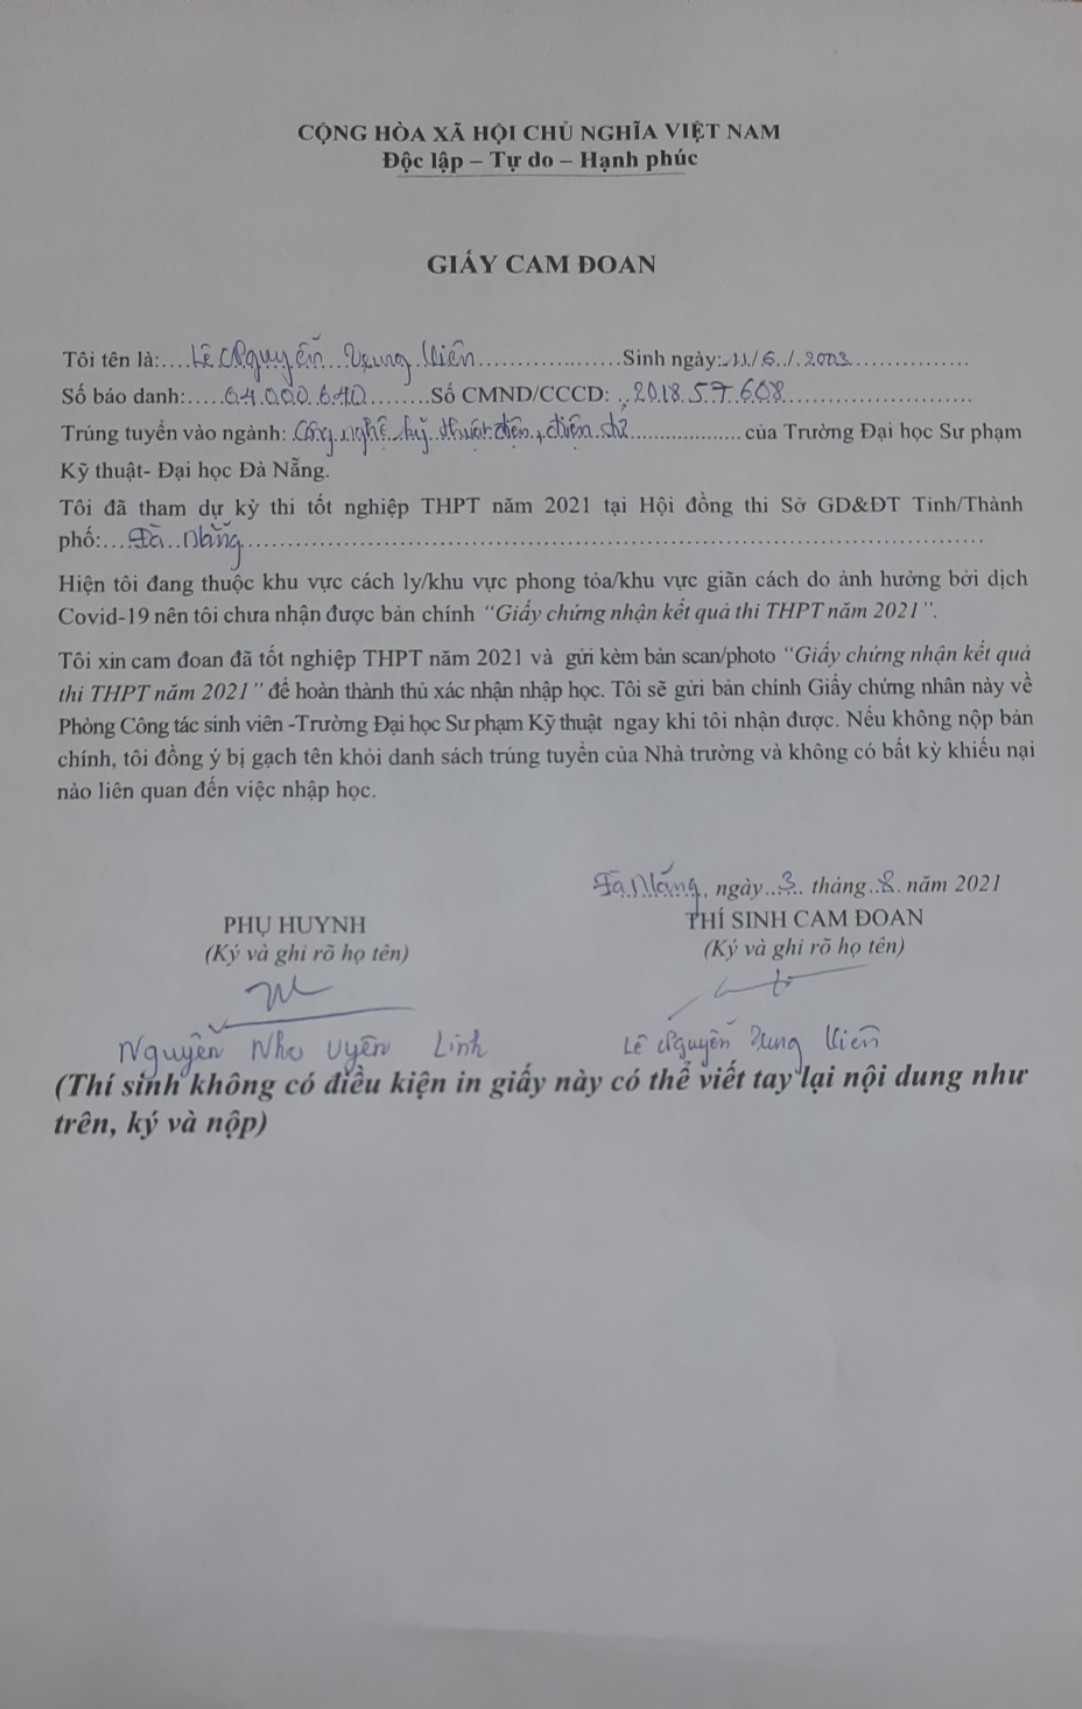 CỘNG HÒA XÃ HỘI CHỦ NGHĨA VIỆT NAM
Độc lập – Tự do – Hạnh phúc
GIẤY CAM ĐOAN
Tôi tên là:....Lê Nguyễn Trung Kiên....................Sinh ngày:..11./6../.2003................
Số báo danh:.....04.000.640.........Số CMND/CCCD: ..201857608..........................
Trúng tuyển vào ngành: Công nghệ kỹ thuật điện, điện tử...................của Trường Đại học Sư phạm
Kỹ thuật- Đại học Đà Nẵng.
Tôi đã tham dự kỳ thi tốt nghiệp THPT năm 2021 tại Hội đồng thi Sở GD&ĐT Tỉnh/Thành
phố:....Đà Nẵng................................................................................
Hiện tôi đang thuộc khu vực cách ly/khu vực phong tỏa/khu vực giãn cách do ảnh hưởng bởi dịch
Covid-19 nên tôi chưa nhận được bản chính “Giấy chứng nhận kết quả thi THPT năm 2021”.
Tôi xin cam đoan đã tốt nghiệp THPT năm 2021 và gửi kèm bản scan/photo “Giấy chứng nhận kết quả
thi THPT năm 2021” để hoàn thành thủ xác nhận nhập học. Tôi sẽ gửi bản chính Giấy chứng nhân này về
Phòng Công tác sinh viên -Trường Đại học Sư phạm Kỹ thuật ngay khi tôi nhận được. Nếu không nộp bản
chính, tôi đồng ý bị gạch tên khỏi danh sách trúng tuyển của Nhà trường và không có bất kỳ khiếu nại
nào liên quan đến việc nhập học.
Đà Nẵng, ngày..3.. tháng..8. năm 2021
PHỤ HUYNH THÍ SINH CAM ĐOAN
(Ký và ghi rõ họ tên) (Ký và ghi rõ họ tên)
Nguyễn Nho Uyên Linh Lê Nguyễn Trung Kiên
(Thí sinh không có điều kiện in giấy này có thể viết tay lại nội dung như
trên, ký và nộp)